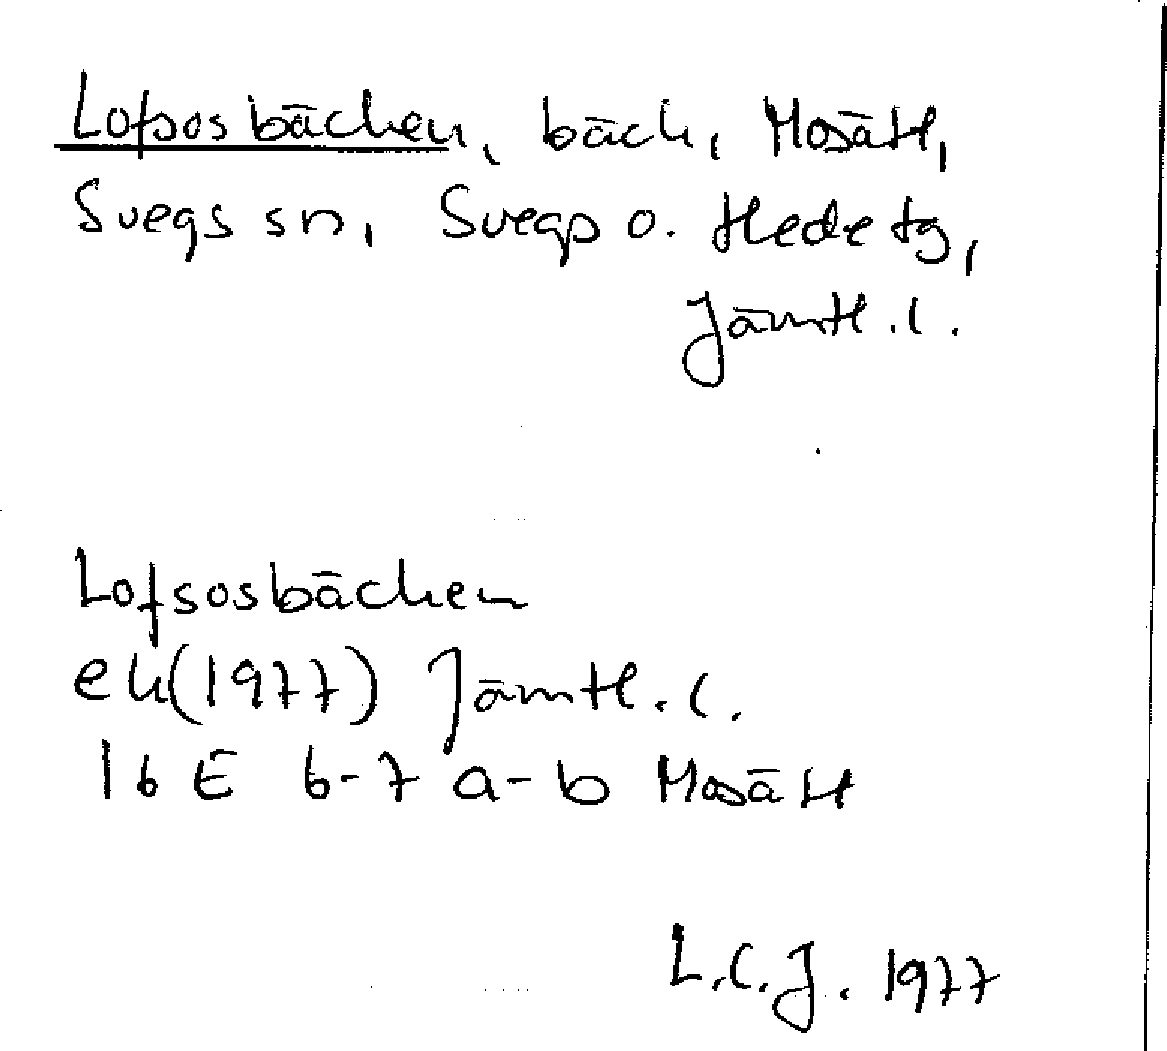 Lofsosbäcken, bäck, Mosätt,
Svegs sn, Svegs o. Hede tg,
Jämtl. l.
Lofsosbäcken
ek(1977) Jämtl. l.
16 E 6-7 a-b Mosätt
L.C.J. 1977